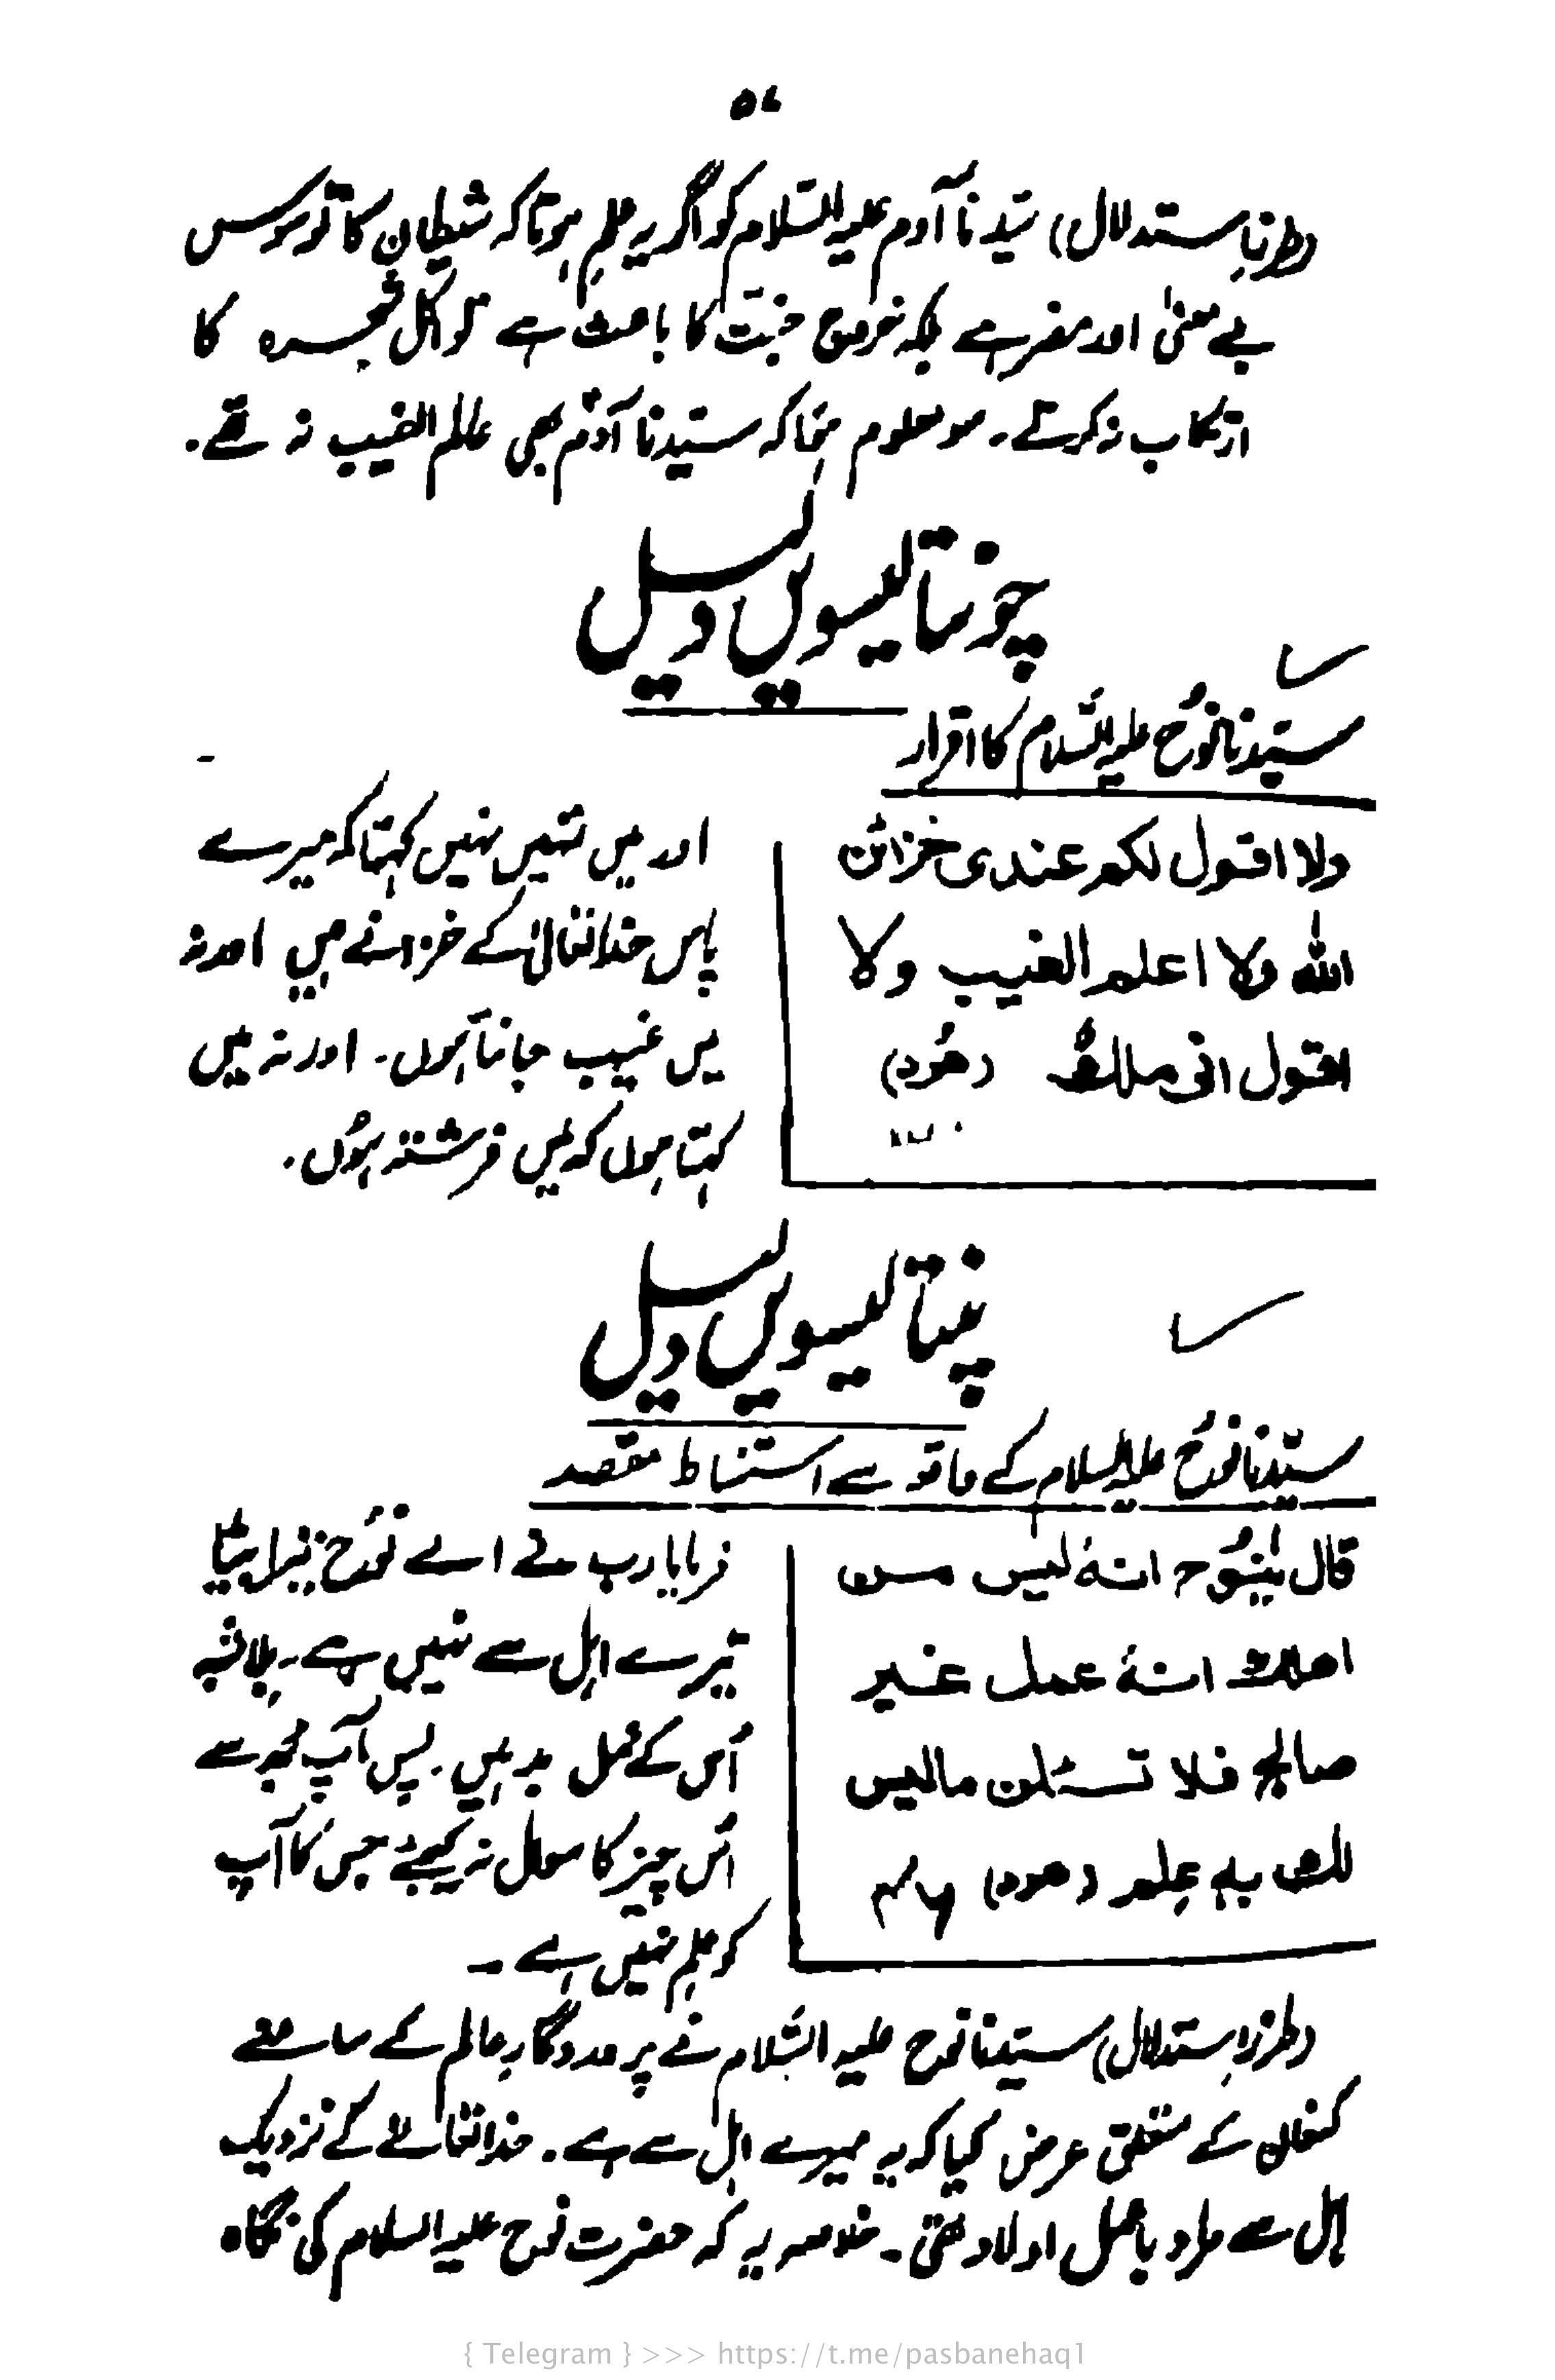 (طرز استدلال) سیّدنا آدم علیہ السّلام کو اگر یہ علم ہوتا کہ شیطان کا تو سوس
بے معنیٰ اور مضر ہے بلکہ خروج جنّت کا باعث ہے تو اکل شجرہ کا
ارتکاب نہ کرتے۔ سو معلوم تھا کہ سیّدنا آدمؑ بھی عالم الغیب نہ تھے۔
چونتالیسویں دلیل
سیّدنا نوحؑ علیہ السّلام کا اقرار
ولا اقول لکم عندی خزائن
الله ولا اعلم الغیب ولا
اقول انی ملک (ھُود)
اور میں تمہیں نہیں کہتا کہ میرے
پاس خدا تعالیٰ کے خزانے ہیں اور نہ
میں غیب جانتا ہوں۔ اور نہ میں
کہتا ہوں کہ میں فرشتہ ہوں۔
پینتالیسویں دلیل
سیّدنا نوحؑ علیہ السلام کے واقعہ سے استنباط مقصد
قال یٰنُوح انهٗ لیس من
اھلک انهٗ عمل غیر
صالح فلا تسئلن مالیس
لک بهٖ عِلم (ھود) ۴۶
فرمایا رب نے اے نوحؑ تیرا بیٹا
تیرے اہل سے نہیں ہے۔ بلاشبہ
اُس کے عمل بد ہیں۔ پس آپ مجھ سے
اس چیز کا سوال نہ کیجئے جس کا آپ
کو علم نہیں ہے۔
(طرز استدلال) سیّدنا نوح علیہ السّلام نے پروردگار عالم کے سامنے
کنعان کے متعلق عرض کیا کہ یہ میرے اہل سے ہے۔ خدا تعالےٰ کے نزدیک
اہل سے مراد باعمل اولاد تھی۔ خلاصہ یہ کہ حضرت نوح علیہ السلام کی نگاہ
{ Telegram } >>> https://t.me/pasbanehaq1